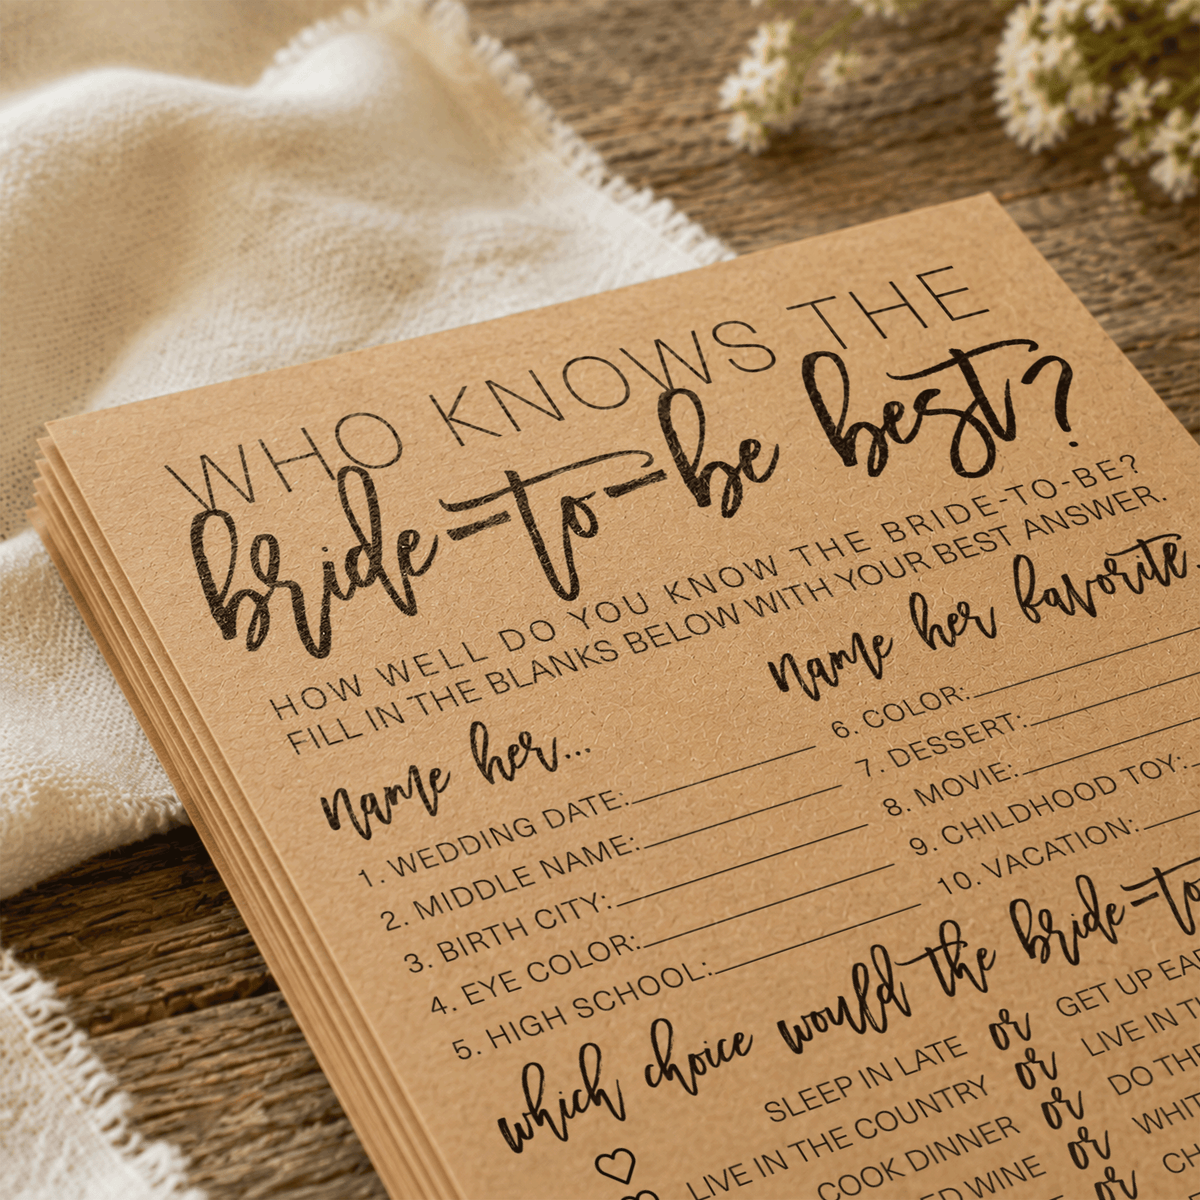 WHO KNOWS THE
bride-to-be best?
HOW WELL DO YOU KNOW THE BRIDE-TO-BE?
FILL IN THE BLANKS BELOW WITH YOUR BEST ANSWER.
name her...
1. WEDDING DATE:
2. MIDDLE NAME:
3. BIRTH CITY:
4. EYE COLOR:
5. HIGH SCHOOL:
name her favorite.
6. COLOR:
7. DESSERT:
8. MOVIE:
9. CHILDHOOD TOY:
10. VACATION:
which choice would the bride-to
SLEEP IN LATE or GET UP EA
LIVE IN THE COUNTRY or LIVE IN T
COOK DINNER or DO THE
WINE or WHIT
or CH